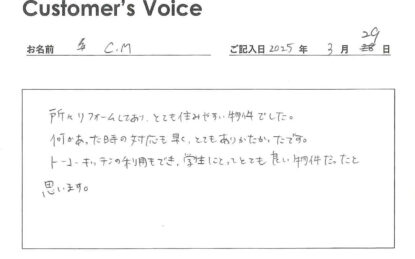 Customer's Voice
お名前 C.M ご記入日 2025 年 3 月 29 日
所々リフォームしてあり、とても住みやすい物件でした。
何かあった時の対応も早く、とてもありがたかったです。
トーコーキッチンの利用もでき、学生にとってとても良い物件だったと
思います。